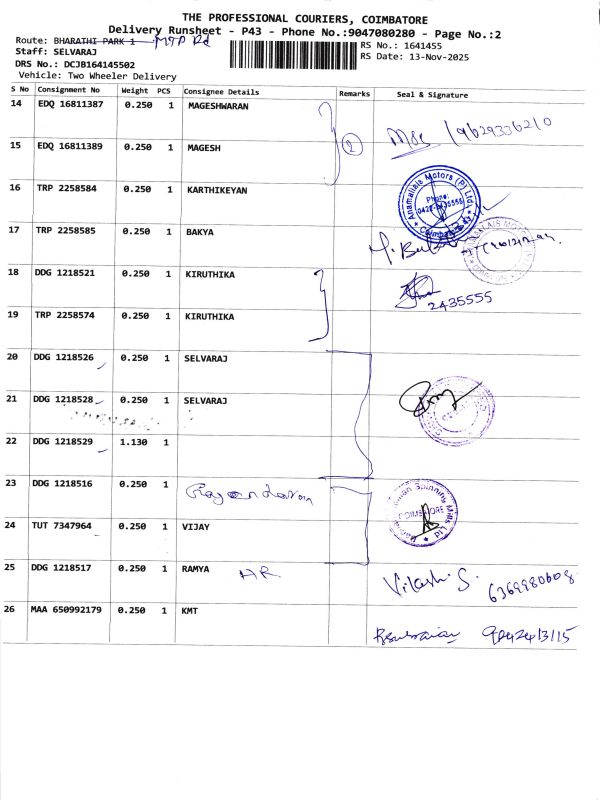 THE PROFESSIONAL COURIERS, COIMBATORE
Delivery Runsheet - P43 - Phone No.:9047080280 - Page No.:2
Route: BHARATHI PARK 1 MTP Rd
RS No.: 1641455
Staff: SELVARAJ
RS Date: 13-Nov-2025
DRS No.: DCJB164145502
Vehicle: Two Wheeler Delivery
S No Consignment No Weight PCS Consignee Details Remarks Seal & Signature
14 EDQ 16811387 0.250 1 MAGESHWARAN
2 9629336210
15 EDQ 16811389 0.250 1 MAGESH
16 TRP 2258584 0.250 1 KARTHIKEYAN
Anamallais Motors (P) Ltd. Phone: Coimbatore
17 TRP 2258585 0.250 1 BAKYA
18 DDG 1218521 0.250 1 KIRUTHIKA
2435555
19 TRP 2258574 0.250 1 KIRUTHIKA
20 DDG 1218526 0.250 1 SELVARAJ
21 DDG 1218528 0.250 1 SELVARAJ
22 DDG 1218529 1.130 1
23 DDG 1218516 0.250 1 Rajendaran
Spinning Mills Ltd COIMBATORE
24 TUT 7347964 0.250 1 VIJAY
25 DDG 1218517 0.250 1 RAMYA HR
Vilash. S. 6369980608
26 MAA 650992179 0.250 1 KMT